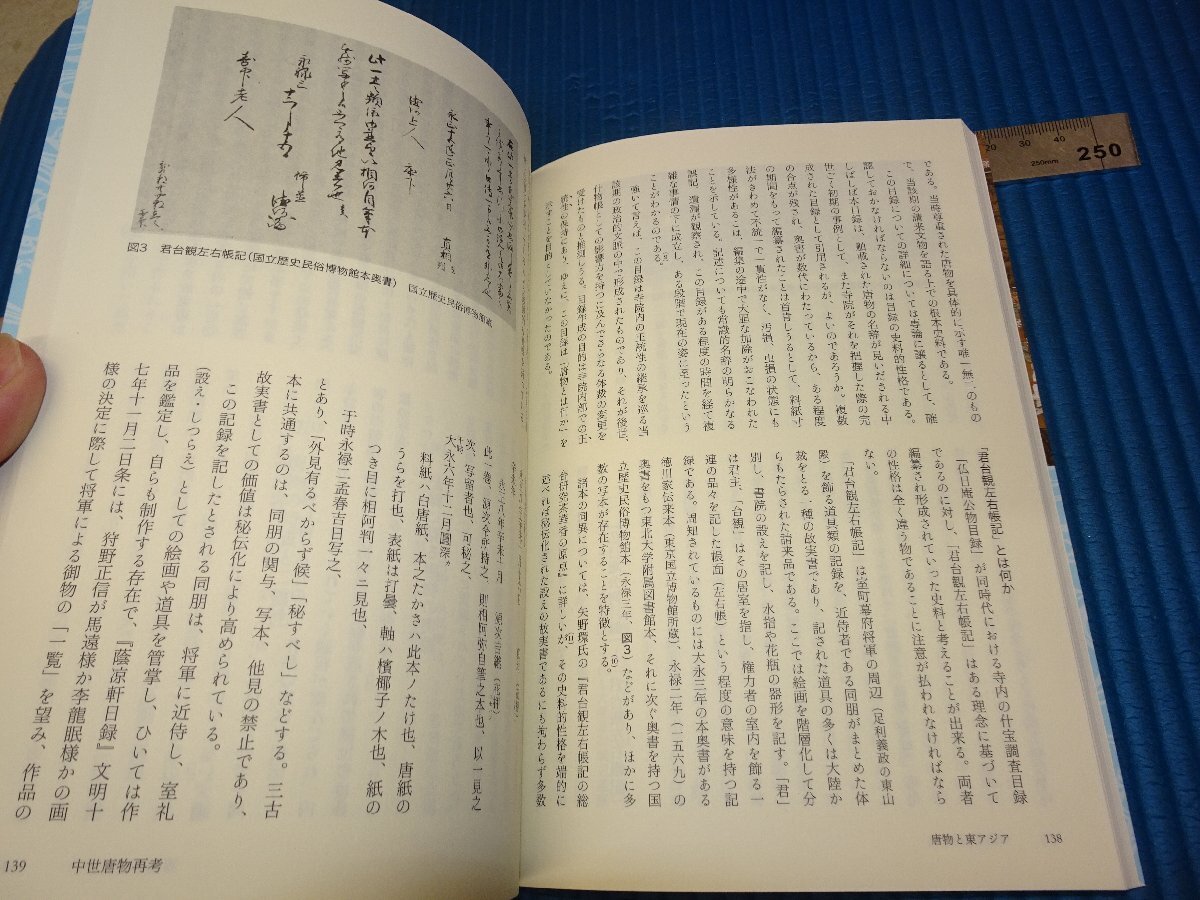 である。当時尊重された唐物を具体的に示す唯一無二のもの
で、当該期の請来文物を語る上での根本史料である。
この目録についての詳細については専論に譲るとして、確
認しておかなければならないのは目録の史料的性格である。
しばしば本目録は、舶載された唐物の名称が見いだされる中
世ごく初期の事例として、また寺院がそれを把握した際の完
成された目録として引用されるが、よいのであろうか。複数
の合点が残され、奥書が数代にわたっているから、ある程度
の期間をもって編纂されたことは首肯しうるとして、料紙寸
法がきわめて不統一で一貫性がなく、汚損、虫損の状態にも
多様性があるこは、編集の途中で大胆な加除がおこなわれた
ことを示している。記述についても常識的名称の明らかなる
誤記、遺漏が観察され、この目録がある程度の時間を経て複
雑な事情の下に成立し、ある段階で現在の姿に至ったという
ことがわかるのである。
強いて言えば、この目録は寺院内の正統性の継承を巡る当
該期の政治的文脈の中で形成されたものであり、それが後世、
什物帳としての影響力を持つに及んでさらなる体裁の変更を
受けたものと推測しうる。目録作成の目的は寺院内部での正
示すことを目的としていなかったのである。
『君台観左右帳記』とは何か
『仏日庵公物目録』が同時代における寺内の什宝調査目録
であるのに対し、『君台観左右帳記』はある理念に基づいて
編纂され形成されていった史料と考えることが出来る。両者
の性格は全く違う物であることに注意が払われなければなら
ない。
『君台観左右帳記』は室町幕府将軍の周辺(足利義政の東山
殿)を飾る道具類の記録を、近侍者である同朋がまとめた体
裁をとる一種の故実書であり、記された道具の多くは大陸か
らもたらされた請来品である。ここでは絵画を階層化して分
別し、書院の設えを記し、水指や花瓶の器形を記す。「君」
は君主、「台観」はその居室を指し、権力者の室内を飾る一
連の品々を記した帳面(左右帳)という程度の意味を持つ記
録である。周知されているものには大永三年の本奥書がある
徳川家伝来本(東京国立博物館所蔵)、永禄二年(一五六九)の
奥書をもつ東北大学附属図書館本、それに次ぐ奥書を持つ国
立歴史民俗博物館本(永禄三年、図3)などがあり、ほかに多
数の写本が存在することを特徴とする。
諸本の同異については、矢野環氏の『君台観左右帳記の総
合研究茶華香の原点』に詳しいが、その史料的性格を端的に
述べれば秘伝化された設えの故実書であるにも拘わらず多数
唐物と東アジア 138
図3 君台観左右帳記(国立歴史民俗博物館本奥書) 国立歴史民俗博物館蔵
此一巻、源次令所持之、則相阿弥自筆之本也、以一見之
次、写留者也、可秘之、
大永六年十二月圓深
料紙ハ白唐紙、本之たかさハ此本ノたけ也、唐紙の
うらを打也、表紙は打曇、軸ハ檳榔子ノ木也、紙の
つき目に相阿判一々ニ見也、
于時永禄二孟春吉日写之、
とあり、「外見有るべからず候」「秘すべし」などする。三古
本に共通するのは、同朋の関与、写本、他見の禁止であり、
故実書としての価値は秘伝化により高められている。
この記録を記したとされる同朋は、将軍に近侍し、室礼
(設え・しつらえ)としての絵画や道具を管掌し、ひいては作
品を鑑定し、自らも制作する存在で、『蔭凉軒日録』文明十
七年十一月二日条には、狩野正信が馬遠様か李龍眠様かの画
様の決定に際して将軍による御物の「一覧」を望み、作品の
139 中世唐物再考
20 30 40
250mm
250